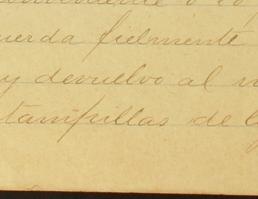 uerda fielmente
y devuelvo al
tampillas de